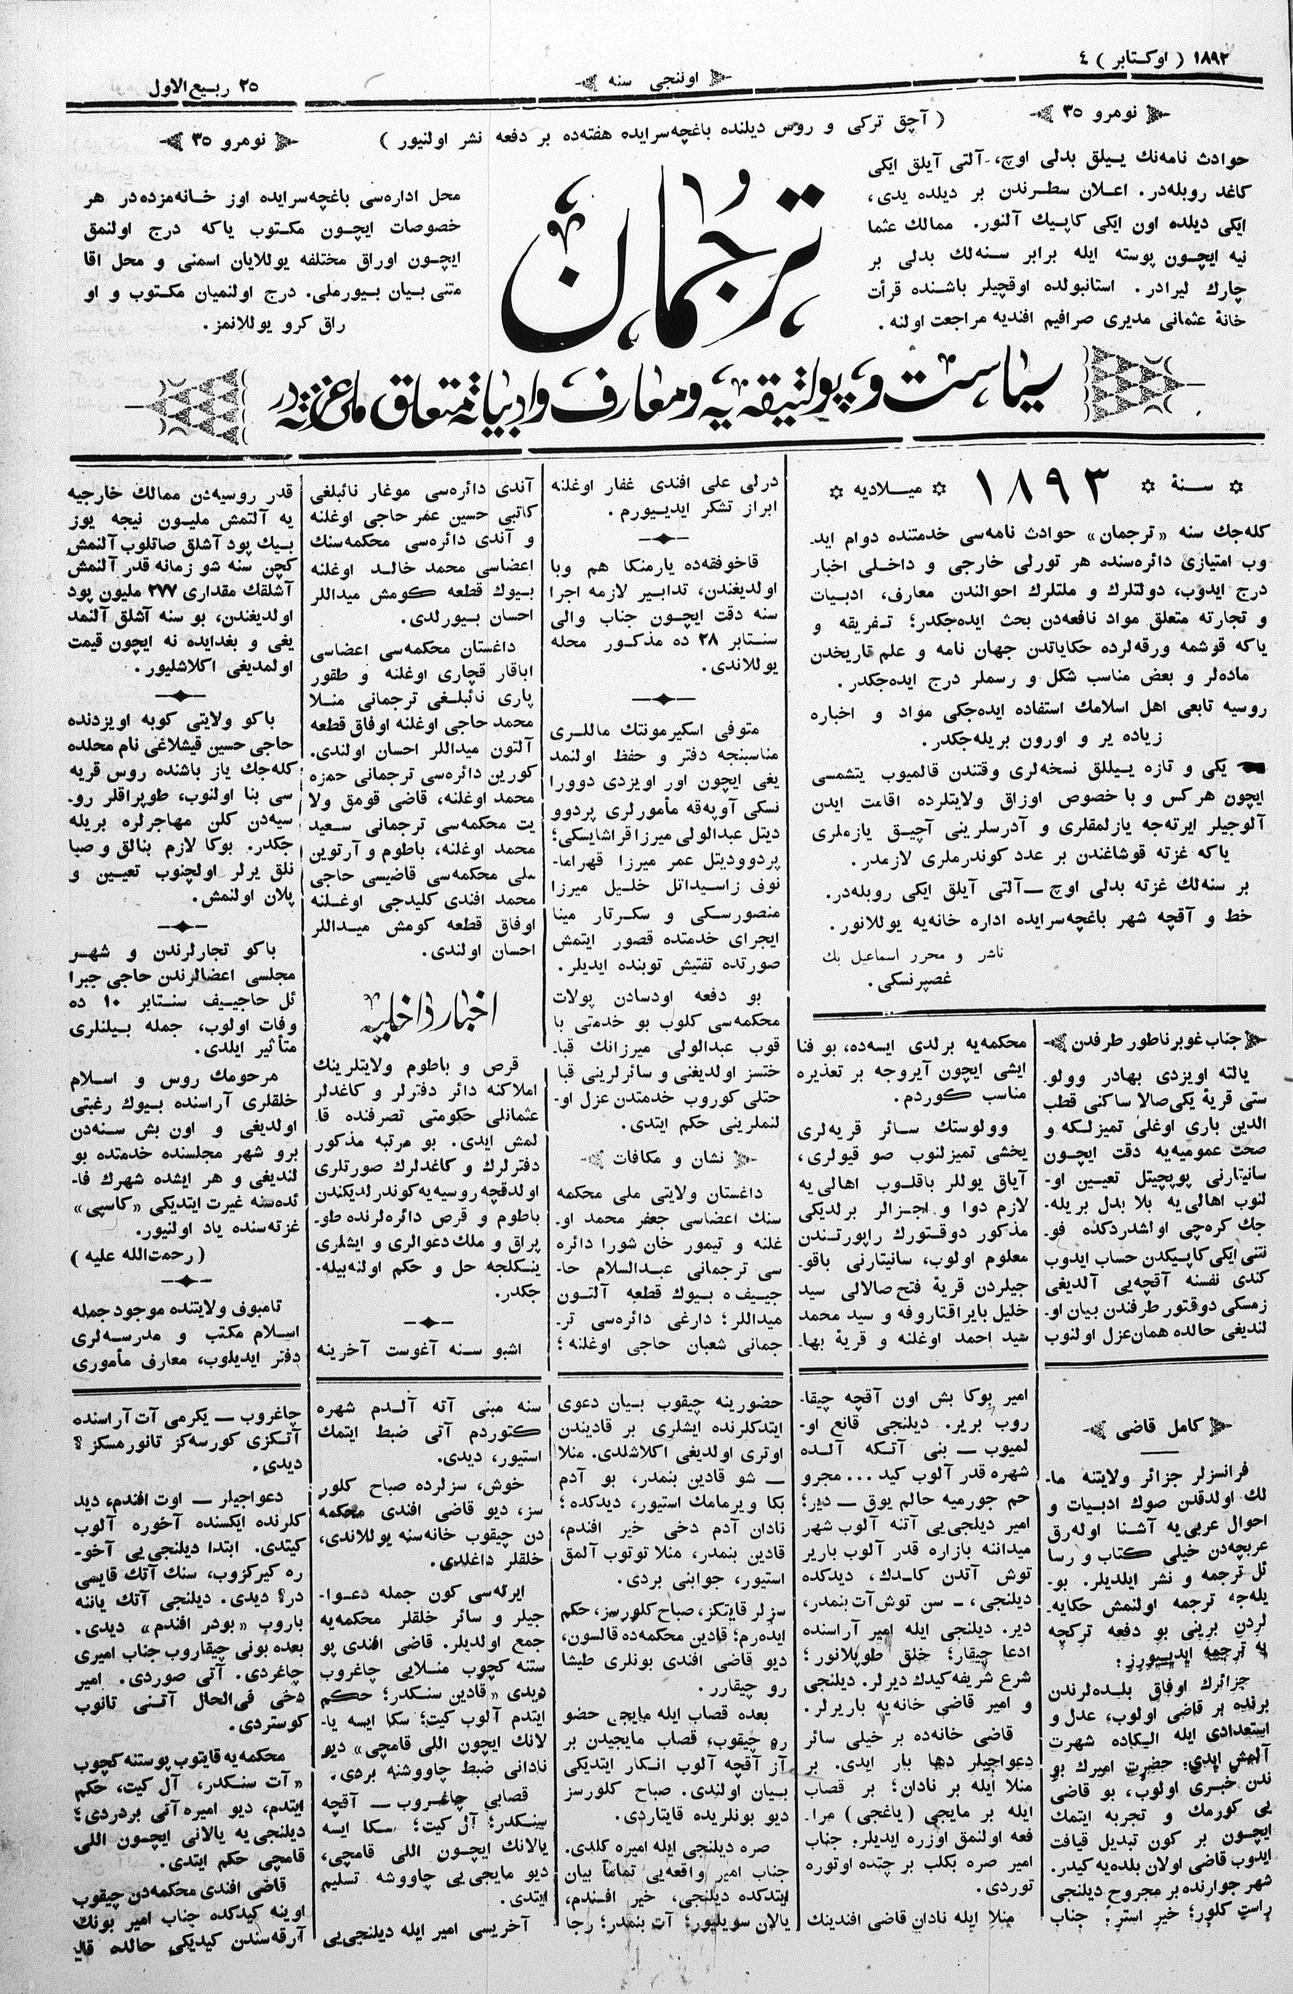 ١٨٩٢ ( اوكتابر ) ٤
اوننجى سنه
٢٥ ربيع الاول
نومرو ٣٥
( آچق تركى و روس ديلنده باغچه‌سرايده هفته‌ده بر دفعه نشر اولنيور )
نومرو ٣٥
حوادث نامه‌نك ييلق بدلى اوچ، آلتى آيلق ايكى
كاغد روبله‌در. اعلان سطرندن بر ديلده يدى،
ايكى ديلده اون ايكى كاپيك آلنور. ممالك عثما
نيه ايچون پوسته ايله برابر سنه‌لك بدلى بر
چارك ليرادر. استانبولده اوقچيلر باشنده قرأت
خانۀ عثمانى مديرى صرافيم افنديه مراجعت اولنه.
ترجمان
محل اداره‌سى باغچه‌سرايده اوز خانه‌مزده‌در هر
خصوصات ايچون مكتوب ياكه درج اولنمق
ايچون اوراق مختلفه يوللايان اسمنى و محل اقا
متنى بيان بيورملى. درج اولنميان مكتوب و او
راق كرو يوللانمز.
سياست و پولتيقه‌يه و معارف و ادبياته متعلق ملى غزته‌در
سنۀ ١٨٩٣ ميلاديه
كله‌جك سنه «ترجمان» حوادث نامه‌سى خدمتنده دوام ايد
وب امتيازى دائره‌سنده هر تورلى خارجى و داخلى اخبار
درج ايدوب، دولتلرك و ملتلرك احوالندن معارف، ادبيات
و تجارته متعلق مواد نافعه‌دن بحث ايده‌جكدر؛ تفريقه و
ياكه قوشمه ورقه‌لرده حكاياتدن جهان نامه و علم تاريخدن
ماده‌لر و بعض مناسب شكل و رسملر درج ايده‌جكدر.
روسيه تابعى اهل اسلامك استفاده ايده‌جكى مواد و اخباره
زياده ير و اورون بريله‌جكدر.
يكى و تازه ييللق نسخه‌لرى وقتندن قالميوب يتشمسى
ايچون هركس و باخصوص اوزاق ولايتلرده اقامت ايدن
آلوجيلر ايرته‌جه يازلمقلرى و آدرسلرينى آچيق يازملرى
ياكه غزته قوشاغندن بر عدد كوندرملرى لازمدر.
بر سنه‌لك غزته بدلى اوچ — آلتى آيلق ايكى روبله‌در.
خط و آقچه شهر باغچه‌سرايده اداره خانه‌يه يوللانور.
ناشر و محرر اسماعيل بك
غصپرنسكى.
جناب غوبرناطور طرفدن
يالته اويزدى بهادر وولو-
ستى قريۀ يكى‌صالا ساكنى قطب
الدين بارى اوغلى تميزلكه و
صحت عموميه‌يه دقت ايچون
سانيتارنى پوپچيتل تعيين او-
لنوب اهالى‌يه بلا بدل بريله-
جك كره‌چى اولشدردكده فو-
نتنى ايكى كاپيكدن حساب ايدوب
كندى نفسنه آقچه‌يى آلديغى
زمسكى دوقتور طرفندن بيان او-
لنديغى حالده همان عزل اولنوب
محكمه‌يه برلدى ايسه‌ده، بو فنا
ايشى ايچون آيروجه بر تعذيره
مناسب كوردم.
وولوستك سائر قريه‌لرى
يخشى تميزلنوب صو قيولرى،
آياق يوللر باقلوب اهالى‌يه
لازم دوا و اجزالر برلديكى
مذكور دوقتورك راپورتندن
معلوم اولوب، سانيتارنى باقو-
جيلردن قريۀ فتح صالالى سيد
خليل بايراقتاروفه و سيد محمد
سيد احمد اوغلنه و قريۀ بها-
درلى على افندى غفار اوغلنه
ابراز تشكر ايديورم.
قاخوفقه‌ده يارمنكا هم وبا
اولديغندن، تدابير لازمه اجرا
سنه دقت ايچون جناب والى
سنتابر ٢٨ ده مذكور محله
يوللاندى.
متوفى اسكيرمونتك ماللرى
مناسبنجه دفتر و حفظ اولنمد
يغى ايچون اور اويزدى دوورا
نسكى آوپه‌قه مأمورلرى پردوو
ديتل عبدالولى ميرزا قراشايسكى؛
پردووديتل عمر ميرزا قهراما-
نوف زاسيداتل خليل ميرزا
منصورسكى و سكرتار مينا
ايجراى خدمتده قصور ايتمش
صورتده تفتيش توبنده ايديلر.
بو دفعه اودسادن پولات
محكمه‌سى كلوب بو خدمتى با
قوب عبدالولى ميرزانك قبا-
حتسز اولديغنى و سائرلرينى قبا
حتلى كوروب خدمتدن عزل او-
لنملرينى حكم ايتدى.
نشان و مكافات
داغستان ولايتى ملى محكمه
سنك اعضاسى جعفر محمد او-
غلنه و تيمور خان شورا دائره
سى ترجمانى عبدالسلام حا-
جييف‌ه بيوك قطعه آلتون
ميداللر؛ دارغى دائره‌سى تر-
جمانى شعبان حاجى اوغلنه؛
آندى دائره‌سى موغار نائبلغى
كاتبى حسين عمر حاجى اوغلنه
و آندى دائره‌سى محكمه‌سنك
اعضاسى محمد خالد اوغلنه
بيوك قطعه كومش ميداللر
احسان بيورلدى.
داغستان محكمه‌سى اعضاسى
اباقار قچارى اوغلنه و طقور
پارى نائبلغى ترجمانى منلا
محمد حاجى اوغلنه اوفاق قطعه
آلتون ميداللر احسان اولندى.
كورين دائره‌سى ترجمانى حمزه
محمد اوغلنه، قاضى قومق ولا
يت محكمه‌سى ترجمانى سعيد
محمد اوغلنه، باطوم و آرتوين
ملى محكمه‌سى قاضيسى حاجى
محمد افندى كليدجى اوغلنه
اوفاق قطعه كومش ميداللر
احسان اولندى.
اخبار داخليه
قرص و باطوم ولايتلرينك
املاكنه دائر دفترلر و كاغدلر
عثمانلى حكومتى تصرفنده قا
لمش ايدى. بو مرتبه مذكور
دفترلرك و كاغدلرك صورتلرى
اولدقچه روسيه‌يه كوندرلديكندن
باطوم و قرص دائره‌لرنده طو-
پراق و ملك دعوالرى و ايشلرى
ينكلجه حل و حكم اولنه‌بيله-
جكدر.
اشبو سنه آغوست آخرينه
قدر روسيه‌دن ممالك خارجيه
يه آلتمش مليون نيجه يوز
بيك پود آشلق صاتلوب آلنمش
كچن سنه شو زمانه قدر آلنمش
آشلقك مقدارى ٢٧٧ مليون پود
اولديغندن، بو سنه آشلق آلنمد
يغى و بغدايده نه ايچون قيمت
اولمديغى اكلاشليور.
باكو ولايتى كوبه اويزدنده
حاجى حسين قيشلاغى نام محلده
كله‌جك ياز باشنده روس قريه
سى بنا اولنوب، طوپراقلر رو-
سيه‌دن كلن مهاجرلره بريله
جكدر. بوكا لازم بنالق و صبا
نلق يرلر اولچنوب تعيين و
پلان اولنمش.
باكو تجارلرندن و شهر
مجلسى اعضالرندن حاجى جبرا
ئل حاجييف سنتابر ١٠ ده
وفات اولوب، جمله بيلنلرى
متأثير ايلدى.
مرحومك روس و اسلام
خلقلرى آراسنده بيوك رغبتى
اولديغى و اون بش سنه‌دن
برو شهر مجلسنده خدمتده بو
لنديغى و هر ايشده شهرك فا-
ئده‌سنه غيرت ايتديكى «كاسپى»
غزته‌سنده ياد اولنيور.
( رحمت‌الله عليه )
تامبوف ولايتنده موجود جمله
اسلام مكتب و مدرسه‌لرى
دفتر ايديلوب، معارف مأمورى
كامل قاضى
فرانسزلر جزائر ولايتنه ما-
لك اولدقدن صوك ادبيات و
احوال عربى‌يه آشنا اوله‌رق
عربچه‌دن خيلى كتاب و رسا
ئل ترجمه و نشر ايلديلر. بو-
يله‌جه ترجمه اولنمش حكايه-
لردن برينى بو دفعه تركچه
يه ترجمه ايديورز:
جزائرك اوفاق بلده‌لرندن
برنده بر قاضى اولوب، عدل و
استعدادى ايله الكاده شهرت
آلمش ايدى؛ حضرت اميرك بو
ندن خبرى اولوب، بو قاضى
يى كورمك و تجربه ايتمك
ايچون بر كون تبديل قيافت
ايدوب قاضى اولان بلده‌يه كيدر.
شهر جوارنده بر مجروح ديلنجى
راست كلور؛ خير استر؛ جناب
امير بوكا بش اون آقچه چيقا-
روب برير. ديلنجى قانع او-
لميوب — بنى آتكه آلده
شهره قدر آلوب كيد... مجرو
حم جورميه حالم يوق — دير؛
امير ديلجى‌يى آتنه آلوب شهر
ميداننه بازاره قدر آلوب باربر
توش آتدن كلدك، ديدكده
ديلنجى، — سن توش آت بنمدر،
دير. ديلنجى ايله امير آراسنده
ادعا چيقار؛ خلق طوپلانور؛
شرع شريفه كيدك ديرلر. ديلنجى
و امير قاضى خانه‌يه باريرلر.
قاضى خانه‌ده بر خيلى سائر
دعواجيلر دها بار ايدى. بر
منلا ايله بر نادان؛ بر قصاب
ايله بر مايجى ( ياغجى ) مرا-
فعه اولنمق اوزره ايديلر. جناب
امير صره بكلب بر چتده اوتوره
توردى.
منلا ايله نادان قاضى افندينك
حضورينه چيقوب بيان دعوى
ايتدكلرنده ايشلرى بر قاديندن
اوترى اولديغى اكلاشلدى. منلا
— شو قادين بنمدر، بو آدم
بكا ويرمامك استيور، ديدكده؛
نادان آدم دخى خير افندم،
قادين بنمدر، منلا توتوب آلمق
استيور، جوابنى بردى.
سزلر قايتكز، صباح كلورسز، حكم
ايده‌رم؛ قادين محكمه‌ده قالسون،
ديو قاضى افندى بونلرى طيشا
رو چيقارر.
بعده قصاب ايله مايجى حضو
ره چيقوب، قصاب مايجيدن بر
آز آقچه آلوب انكار ايتديكى
بيان اولندى. صباح كلورسز
ديو بونلريده قايتاردى.
صره ديلنجى ايله اميره كلدى.
جناب امير واقعه‌يى تماماً بيان
ايتدكده ديلنجى، خير افندم،
يالان سويليور؛ آت بنمدر؛ رجا
سنه مبنى آته آلدم شهره
كتوردم آتى ضبط ايتمك
استيور، ديدى.
خوش، سزلرده صباح كلور
سز، ديو قاضى افندى محكمه
دن چيقوب خانه‌سنه يوللاندى،
خلقلر داغلدى.
ايرله‌سى كون جمله دعوا-
جيلر و سائر خلقلر محكمه‌يه
جمع اولديلر. قاضى افندى پو
ستنه كچوب منلايى چاغروب
ديدى «قادين سنكدر؛ حكم
ايتدم آلوب كيت؛ سكا ايسه يا-
لانك ايچون اللى قامچى» ديو
نادانى ضبط چاووشنه بردى.
قصابى چاغروب — آقچه
سنكدر؛ آل كيت؛ سكا ايسه
يالانك ايچون اللى قامچى،
ديو مايجى‌يى چاووشه تسليم
ايتدى.
آخريسى امير ايله ديلنجى‌يى
چاغروب — يكرمى آت آراسنده
آتكزى كورسه‌كز تانورمسكز؟
ديدى.
دعواجيلر — اوت افندم، ديد
كلرنده ايكسنده آخوره آلوب
كيتدى. ابتدا ديلنجى‌يى آخو-
ره كيركزوب، سنك آتك قايسى
در؟ ديدى. ديلنجى آتك ياننه
باروب «بودر افندم» ديدى.
بعده بونى چيقاروب جناب اميرى
چاغردى. آتى صوردى. امير
دخى فى‌الحال آتنى تانوب
كوستردى.
محكمه‌يه قايتوب پوستنه كچوب
«آت سنكدر، آل كيت، حكم
ايتدم، ديو اميره آتى بردردى؛
ديلنجى‌يه يالانى ايچون اللى
قامچى حكم ايتدى.
قاضى افندى محكمه‌دن چيقوب
اوينه كيدكده جناب امير بونك
آرقه‌سندن كيديكى حالده قا